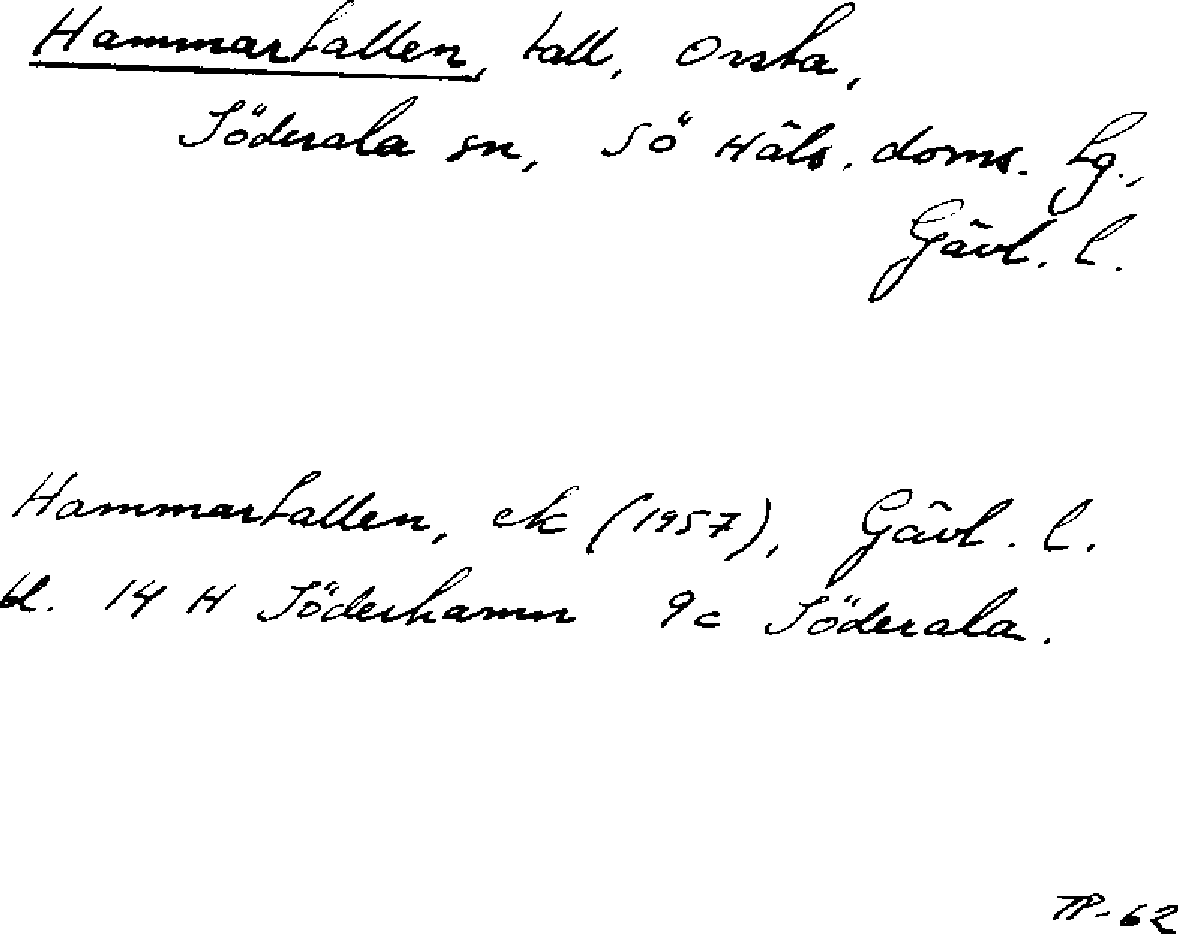 Hammartallen, tall, Orsta,
Söderala sn, Sö Häls. doms. tg.,
Gävl. l.
Hammartallen, ek (1957), Gävl. l.
bl. 14 H Söderhamn 9c Söderala.
TP-62